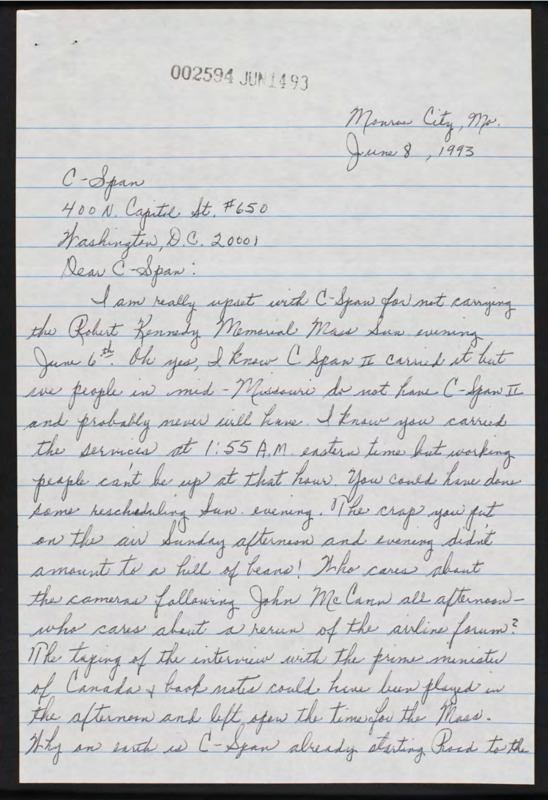 002594 JUN 14 93
Monroe City, Mo.
June 8, 1993
C-Span
400 N. Capitol St. #650
Washington, D.C. 20001
Dear C-Span:
I am really upset with C-Span for not carrying
the Robert Kennedy Memorial Mass Sun evening
June 6th. Oh yes, I know C Span II carried it but
we people in mid-Missouri do not have C-Span II
and probably never will have. I know you carried
the services at 1:55 A.M. eastern time but working
people can't be up at that hour. You could have done
some rescheduling Sun. evening. The crap you put
on the air Sunday afternoon and evening didn't
amount to a hill of beans! Who cares about
the cameras following John McCann all afternoon -
who cares about a rerun of the airline forum?
The taping of the interview with the prime minister
of Canada & book notes could have been played in
the afternoon and left open the time for the Mass.
Why on earth is C-Span already starting Road to the